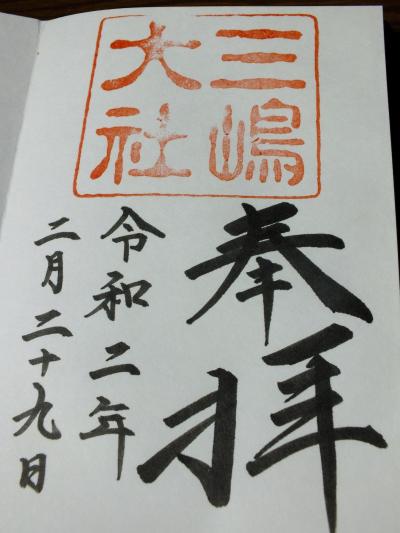 三嶋
大社
奉拜
令和二年
二月二十九日